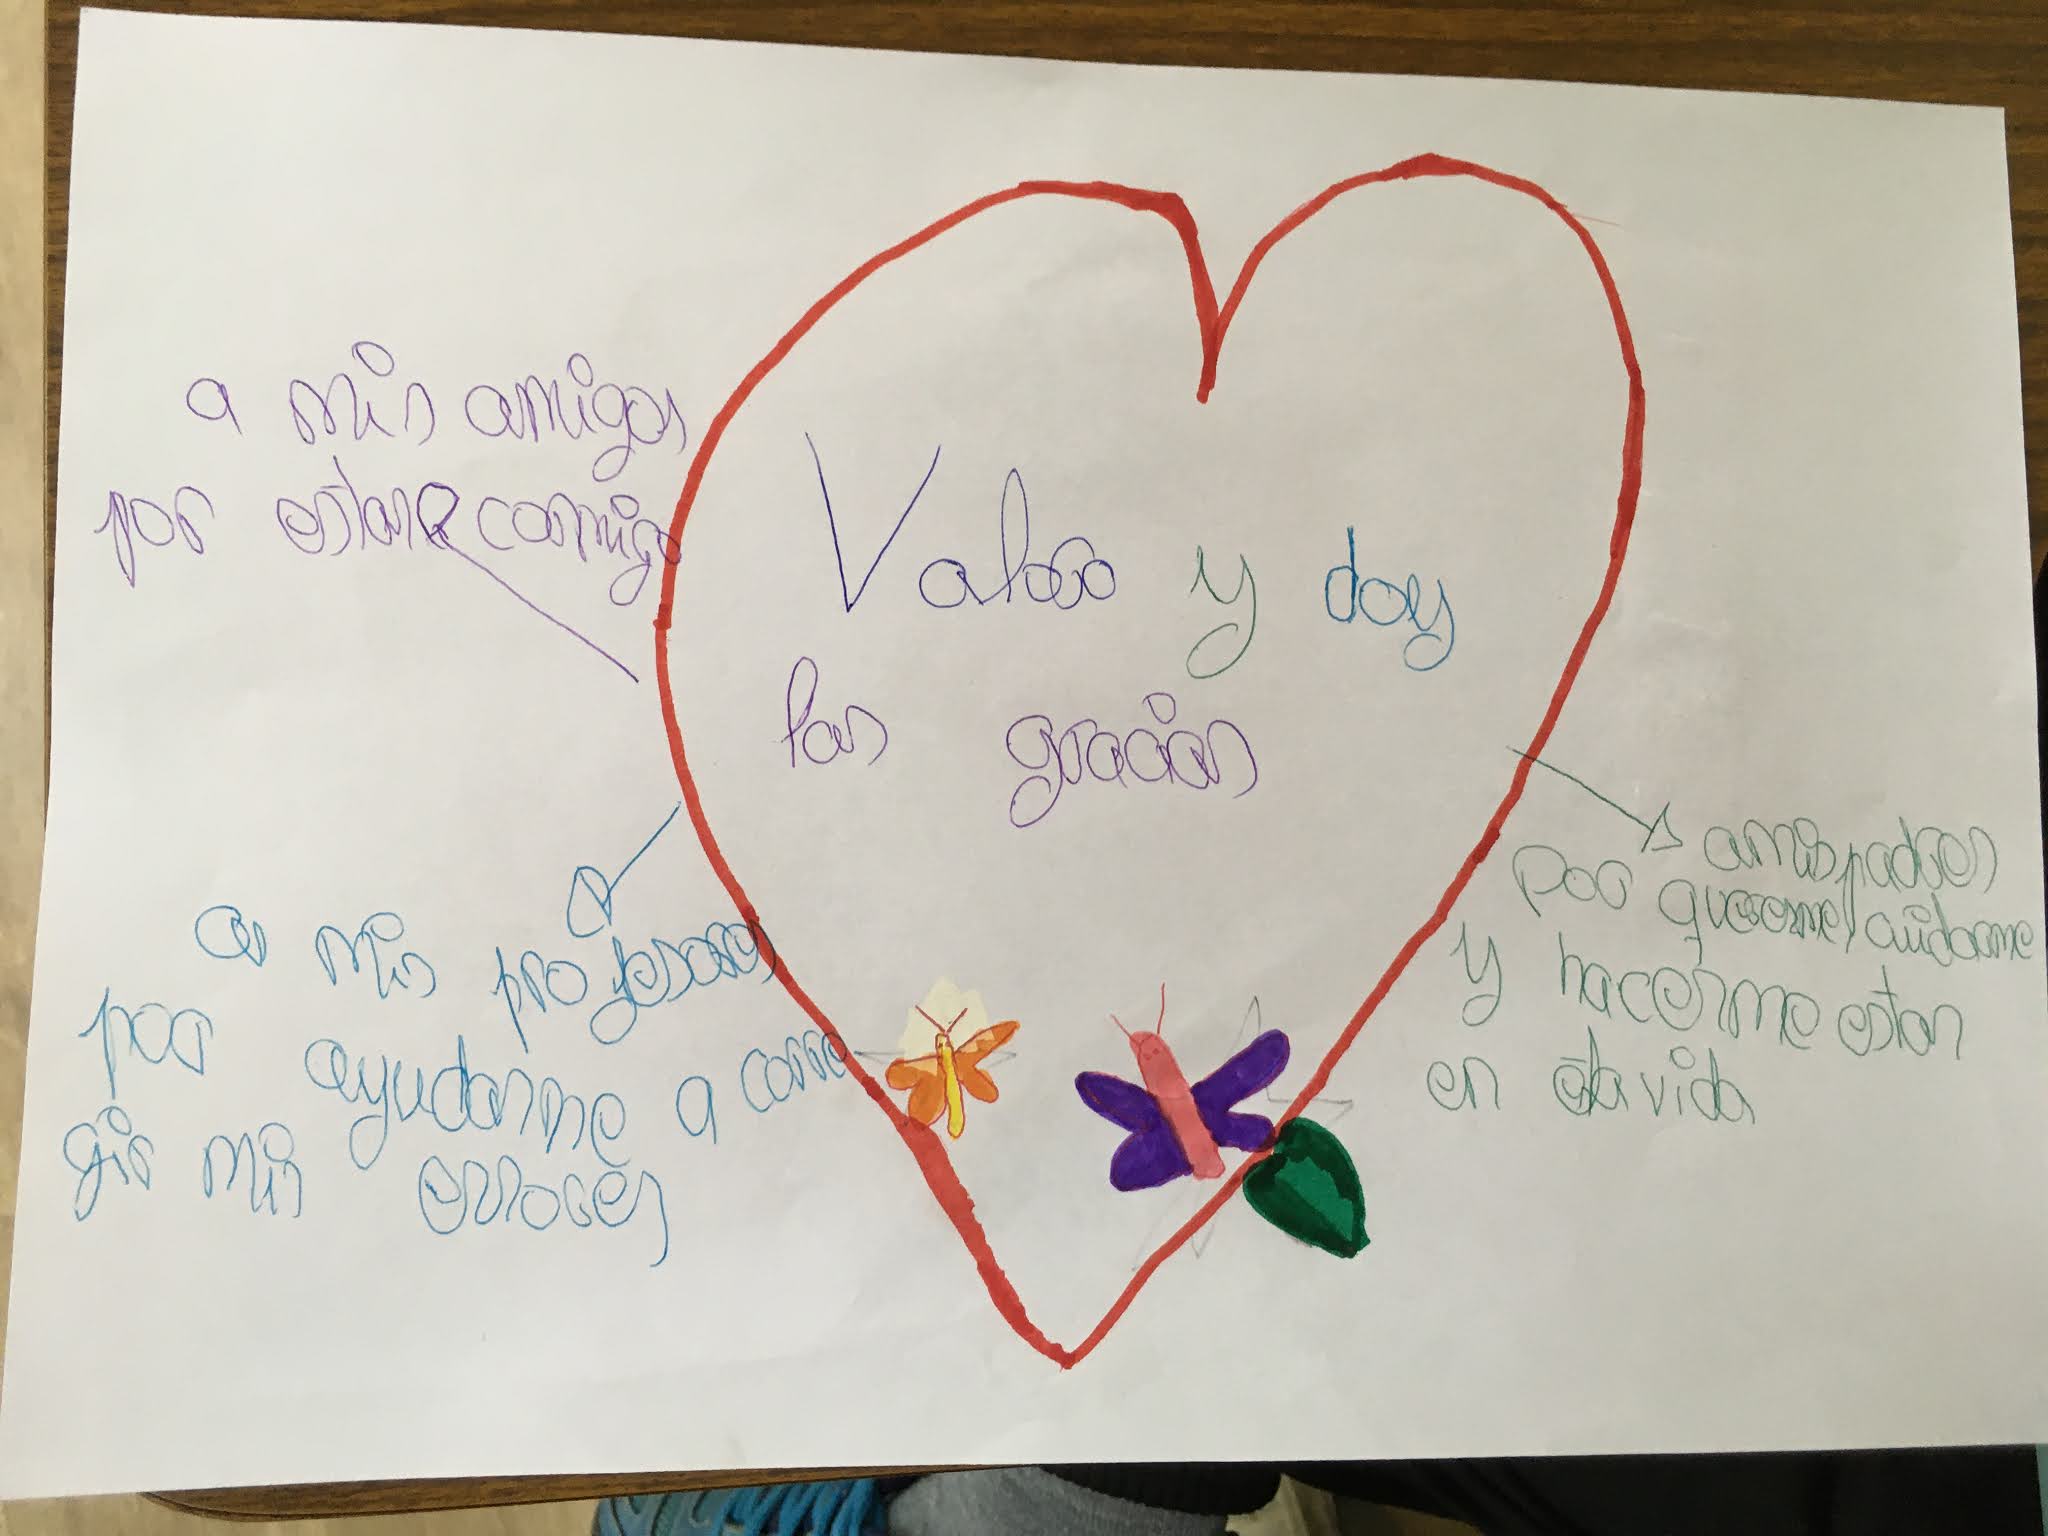 Valoro y doy
las gracias
a mis amigos
por estar conmigo
a mis profesores
por ayudarme a corre
gir mis errores
a mis padres
por quererme, cuidarme
y hacerme estar
en esta vida